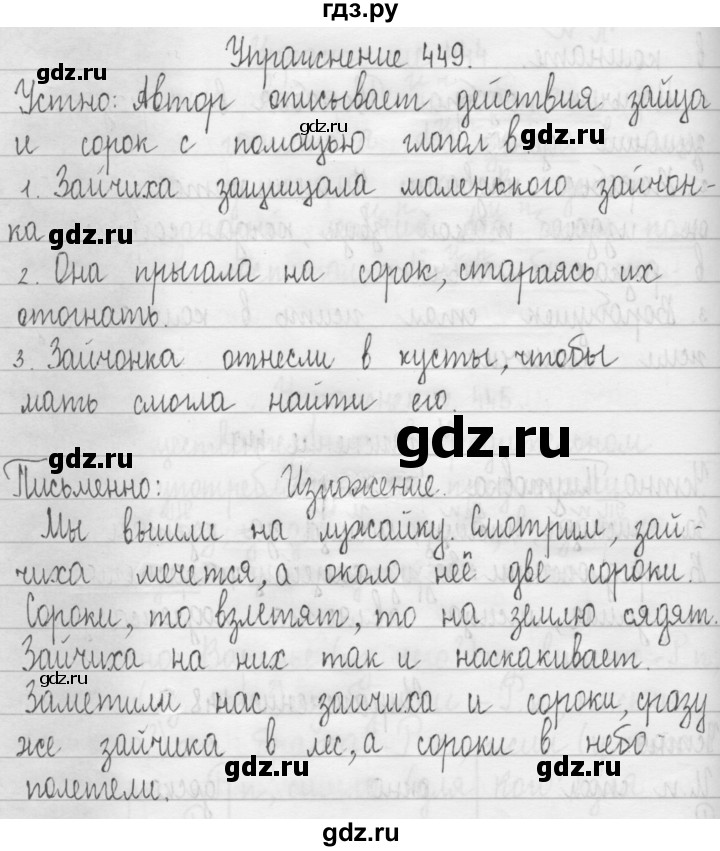 гдз.ру
Упражнение 449.
gdz.ru
Устно: Автор описывает действия зайца
gdz.ru
и сорок с помощью глагол в
gdz.ru
1. Зайчиха защищала маленького зайчон-
ка gdz.ru
2. Она прыгала на сорок, стараясь их
отогнать.
3. Зайчонка отнесли в кусты, чтобы
мать смогла найти его.
gdz.ru
gdz.ru
Письменно: Изложение.
Мы вышли на лужайку. Смотрим, зай-
gdz.ru
чиха мечется, а около неё две сороки.
Сороки, то взлетят, то на землю садят.
Зайчиха на них так и наскакивает.
gdz.ru
Заметили нас зайчиха и сороки, сразу
же зайчика в лес, а сороки в небо
gdz.ru gdz.ru
полетели.
gdz.ru